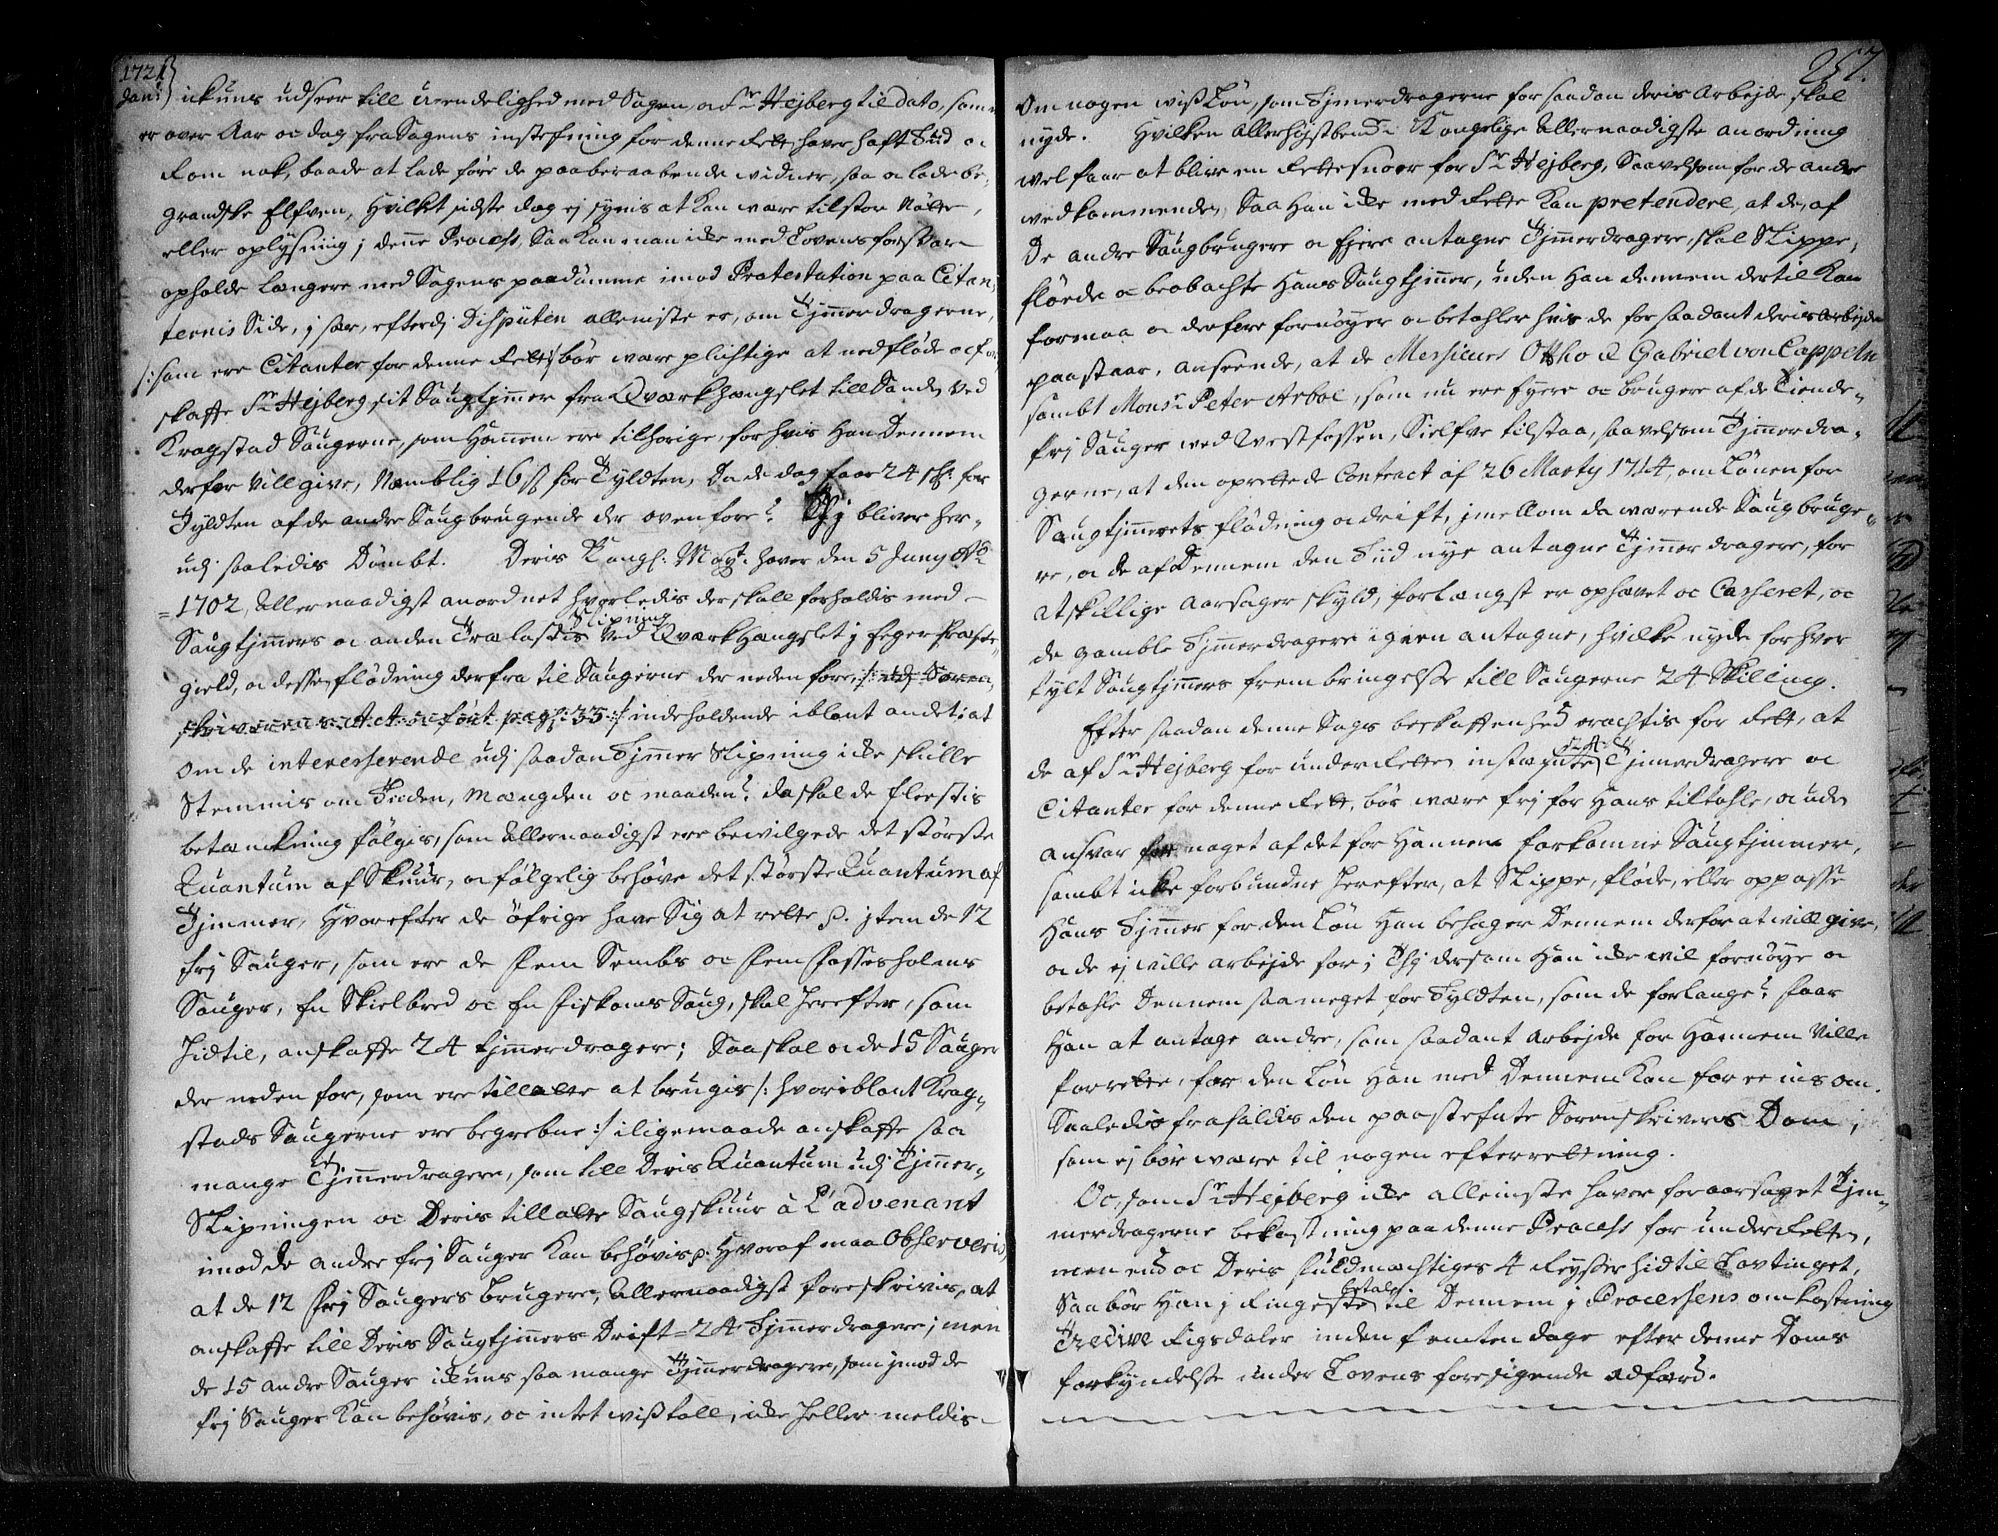 1721
Jani
ickuns udseer till uendelighed med Sagen, af Sr Hejberg til dato, som
er over Aar oc dag fra Sagens instefning for denne Rett, haver haft Tiid oc
Rom nok, baade at lade føre de paaberaabende widner, saa oc lade be,
grandske Elfven, hvilket sidste dog ej synis at kan være til stor Nøtte,
eller oplysning j denne Process, Saa kan man icke med Lovens forsvar
opholde længere med Sagens paadømme imod Protestation paa Citan,
ternis Side, j sær, efterdj Disputen alleniste er, om Tjmmerdragerne,
/: som ere Citanter for denne Rett :/ bør være plichtige at nedfløde oc for,
skaffe Sr Hejberg sit Saugtjmmer fra Qværkhængslet till Sande ved
Kragstad Saugerne, som Hannem ere tilhørige, for hvis Han Dennem
derfor vill give, Nemblig 16 ß for Tyldten, Da de dog faar 24 sch: for
Tyldten af de andre Saugbrugende der ovenfore? Thj bliver her,
udj saaledis Dømbt. Deris Kongl: Mayt: haver den 5 Juny Ao
1702, Allernaadigst anordnet hvorledis der skall forholdis med
Saugtjmmers oc anden Trælastis Slipning ved Qværkhængslet j Eger Præste,
gield, oc dessen flødning derfra til Saugerne der neden fore, /: udj Soren,
skriverens Act anført pag: 33 :/ indeholdende iblant andet: at
om de interesserende udj saadan Tjmmer Slipning icke skulle
Stemmis om Tiiden, Mængden oc maaden? da skal de fleestis
betænckning følgis, som Allernaadigst ere bewilgede det største
Quantum af Skuur, oc følgelig behøve det største Quantum af
Tjmmer, Hvorefter de øfrige have Sig at rette p. jtem de 12
frj Sauger, som ere de fem Sembs oc fem Fossesholms
Sauger, En Skielbred oc En Fiskoms Saug, skal Herefter, som
Hidtil, anskaffe 24 tjmmerdragere; Saa skal oc de 15 Sauger
der neden for, som ere tilladte at brugis /: hvoriblant Krag,
stads Saugerne ere begrebne :/ iligemaade anskaffe saa
mange Tjmmerdragere, som till Deris Quantum udj Tjmmer,
Slipningen oc Deris tilladte Saugskuur à L'advenant
imod de andre frj Sauger kan behøvis p. Hvoraf maa Observeris,
at de 12 frj Saugers brugere, Allernaadigst foreskrivis, at
anskaffe till Deris Saugtjmmers Drift 24 Tjmmerdragere; men
de 15 andre Sauger ickuns saa mange Tjmmerdragere, som jmod de
frj Sauger kan behøvis, oc intet wist tall, icke heller meldis
257.
Om nogen wiss Løn, som Tjmmerdragerne for saadan deris Arbejde skal
nyde. Hvilken Allerhøjstbemte Kongelige Allernaadigste anordning
vel faar at blive en Rettesnoor for Sr Hejberg, Saavelsom for de andre
vedkommende, Saa Han icke med Rette kan pretendere, at de, af
De andre Saugbrugere oc Ejere antagne Tjmmerdragere, skal Slippe,
fløde oc beobachte Hans Saugtjmmer, uden Han dennem dertil kan
formaa oc derfore fornøyer oc betahler hvis de for saadant deris Arbejde
paastaar, anseende, at de Messieurs Ottho & Gabriel von Cappeln
sambt Monsr Peter Arboe, som nu ere Eyere oc brugere af de Tiende,
frj Sauger ved Vestfossen, Sielfve tilstaa, saavelsom Tjmmerdra,
gerne, at den oprettede Contract af 26 Marty 1714, om Lønen for
Saugtjmmerets flødning oc drift, jmellom da værende Saugbruge,
re, oc de af Dennem den Tiid nye antagne Tjmmerdragere, for
Atskillige Aarsager skyld, forlængst er ophævet oc Casseret, oc
de gamble Tjmmerdragere igien antagne, hvilke nyde for hver
tylt Saugtjmmers frembringelse till Saugerne 24 Skilling.
Efter saadan denne Sags beskaffenhed erachtis for Rett, at
de af Sr Hejberg for underRetten instefnte Tjmmerdragere oc
Citanter for denne Rett, bør være frj for Hans tiltahle, oc uden
ansvar for noget af det for Hannem forkomne Saugtjmmer,
sambt icke forbundne herefter, at Slippe, fløde, eller oppasse
Hans Tjmmer for den Løn Han behager Dennem derfor at vill give,
oc de ej wille arbejde for; Thj dersom Han icke vil fornøye oc
betahle Dennem saa meget for Tyldten, som de forlange? faar
Han at antage andre, som saadant Arbejde for Hannem ville
forrette, for den Løn Han med Dennem kan foreenis om.
Saaledis frafaldis den paastefnte Sorenskrivers Dom,
som ej bør være til nogen efterrettning.
Oc, som Sr Hejberg icke alleniste haver foraarsaget Tjm,
merdragerne bekostning paa denne Process for underRetten,
men end oc Deris fuldmæchtiges 4 Reyser hid til Lavtinget,
Saa bør Han j Ringeste betale til Dennem j Processens omkostning
Tredive Rigsdaler inden femten dage efter denne Doms
forkyndelse under Lovens foresigende Adfærd.